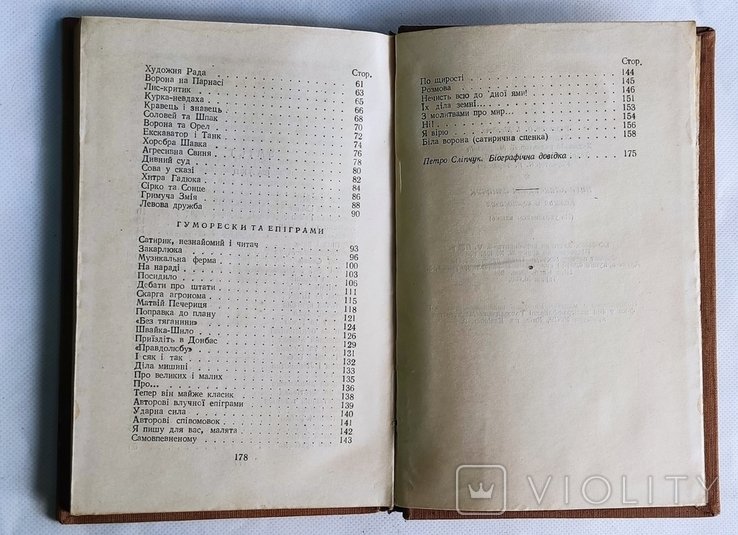 Стор.
Художня Рада 61
Ворона на Парнасі 63
Лис-критик 65
Курка-невдаха 66
Кравець і знавець 68
Соловей та Шпак 70
Ворона та Орел 72
Екскаватор і Танк 74
Хоробра Шавка 76
Агресивна Свиня 78
Дивний суд 80
Сова у сказі 82
Хитра Гадюка 84
Сірко та Сонце 86
Гримуча Змія 88
Левова дружба 90
ГУМОРЕСКИ ТА ЕПІГРАМИ
Сатирик, незнайомий і читач 93
Закарлюка 96
Музикальна ферма 100
На нараді 103
Посидило 106
Дебати про штати 111
Скарга агронома 115
Матвій Печериця 118
Поправка до плану 121
«Без тяганини» 124
Швайка-Шило 126
Приїздіть в Донбас 129
«Правдолюбу» 131
І сяк і так 132
Діла мишині 133
Про великих і малих 135
Про... 136
Тепер він майже класик 138
Авторові влучної епіграми 139
Ударна сила 140
Авторові співомовок 141
Я пишу для вас, малята 142
Самовпевненому 143
178
Стор.
По щирості 144
Розмова 145
Нечисть всю до дної ями! 146
Їх діла земні... 151
З молітвами про мир... 153
Ні! 154
Я вірю 156
Біла ворона (сатирична сценка) 158
Петро Сліпчук. Біографічна довідка. 175
VIOLITY